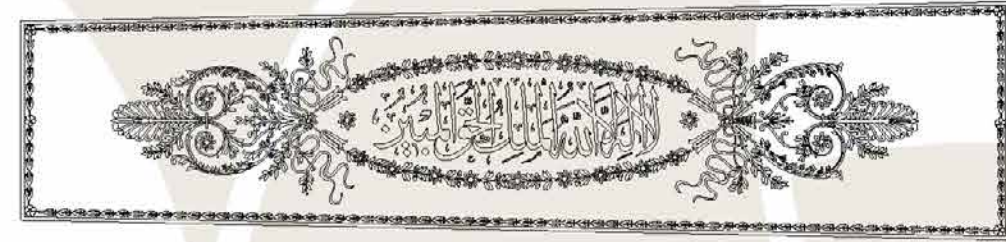 لا اله الا الله الملك الحق المبين